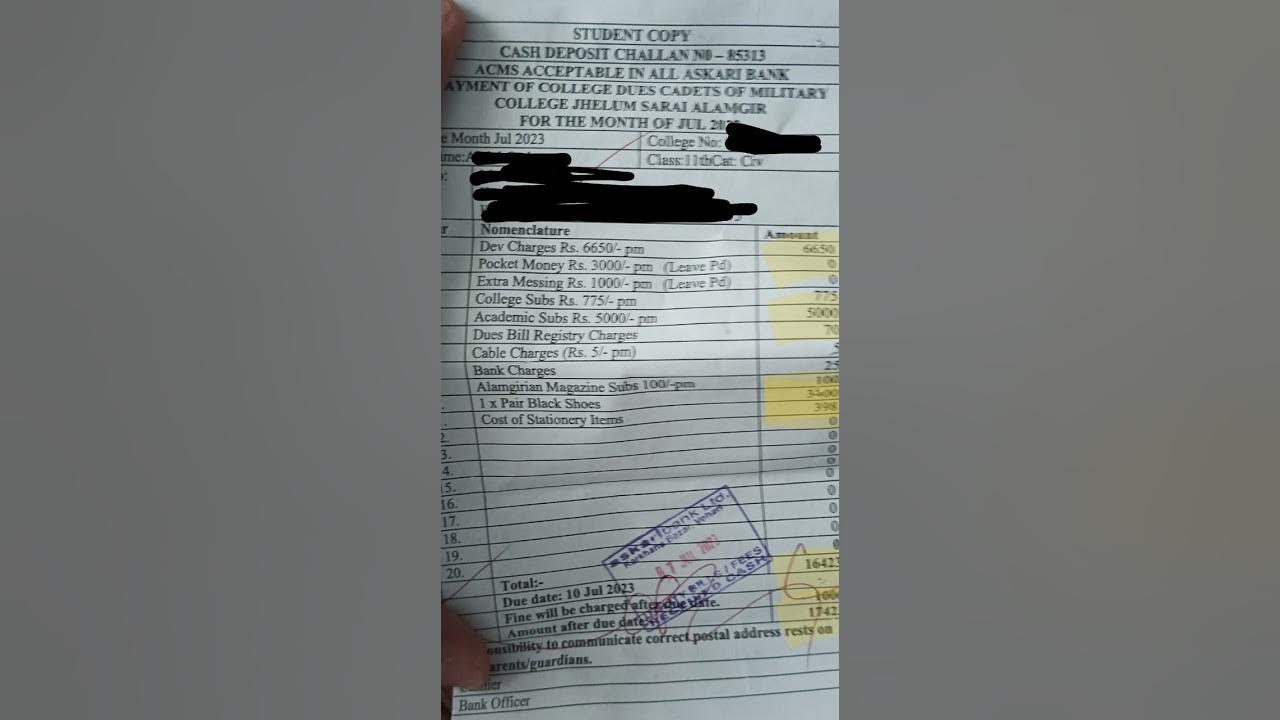 STUDENT COPY
CASH DEPOSIT CHALLAN N0 – 85313
ACMS ACCEPTABLE IN ALL ASKARI BANK
AYMENT OF COLLEGE DUES CADETS OF MILITARY
COLLEGE JHELUM SARAI ALAMGIR
FOR THE MONTH OF JUL
e Month Jul 2023 College No:
me: Class:11thCat: Civ
Nomenclature Amount
Dev Charges Rs. 6650/- pm 6650
Pocket Money Rs. 3000/- pm (Leave Pd) 0
Extra Messing Rs. 1000/- pm (Leave Pd) 0
College Subs Rs. 775/- pm 775
Academic Subs Rs. 5000/- pm 5000
Dues Bill Registry Charges 70
Cable Charges (Rs. 5/- pm) 5
Bank Charges 25
Alamgirian Magazine Subs 100/-pm 100
1 x Pair Black Shoes 3400
Cost of Stationery Items 398
0
2. 0
3. 0
4. 0
15. 0
16. 0
17. 0
18. 0
19. 0
20.
askari bank Ltd.
JUL 2023
RECEIVED CASH
Total:- 16423
Due date: 10 Jul 2023
Fine will be charged after due date. 1000
Amount after due date: 1742
onsibility to communicate correct postal address rests on
arents/guardians.
Bank Officer